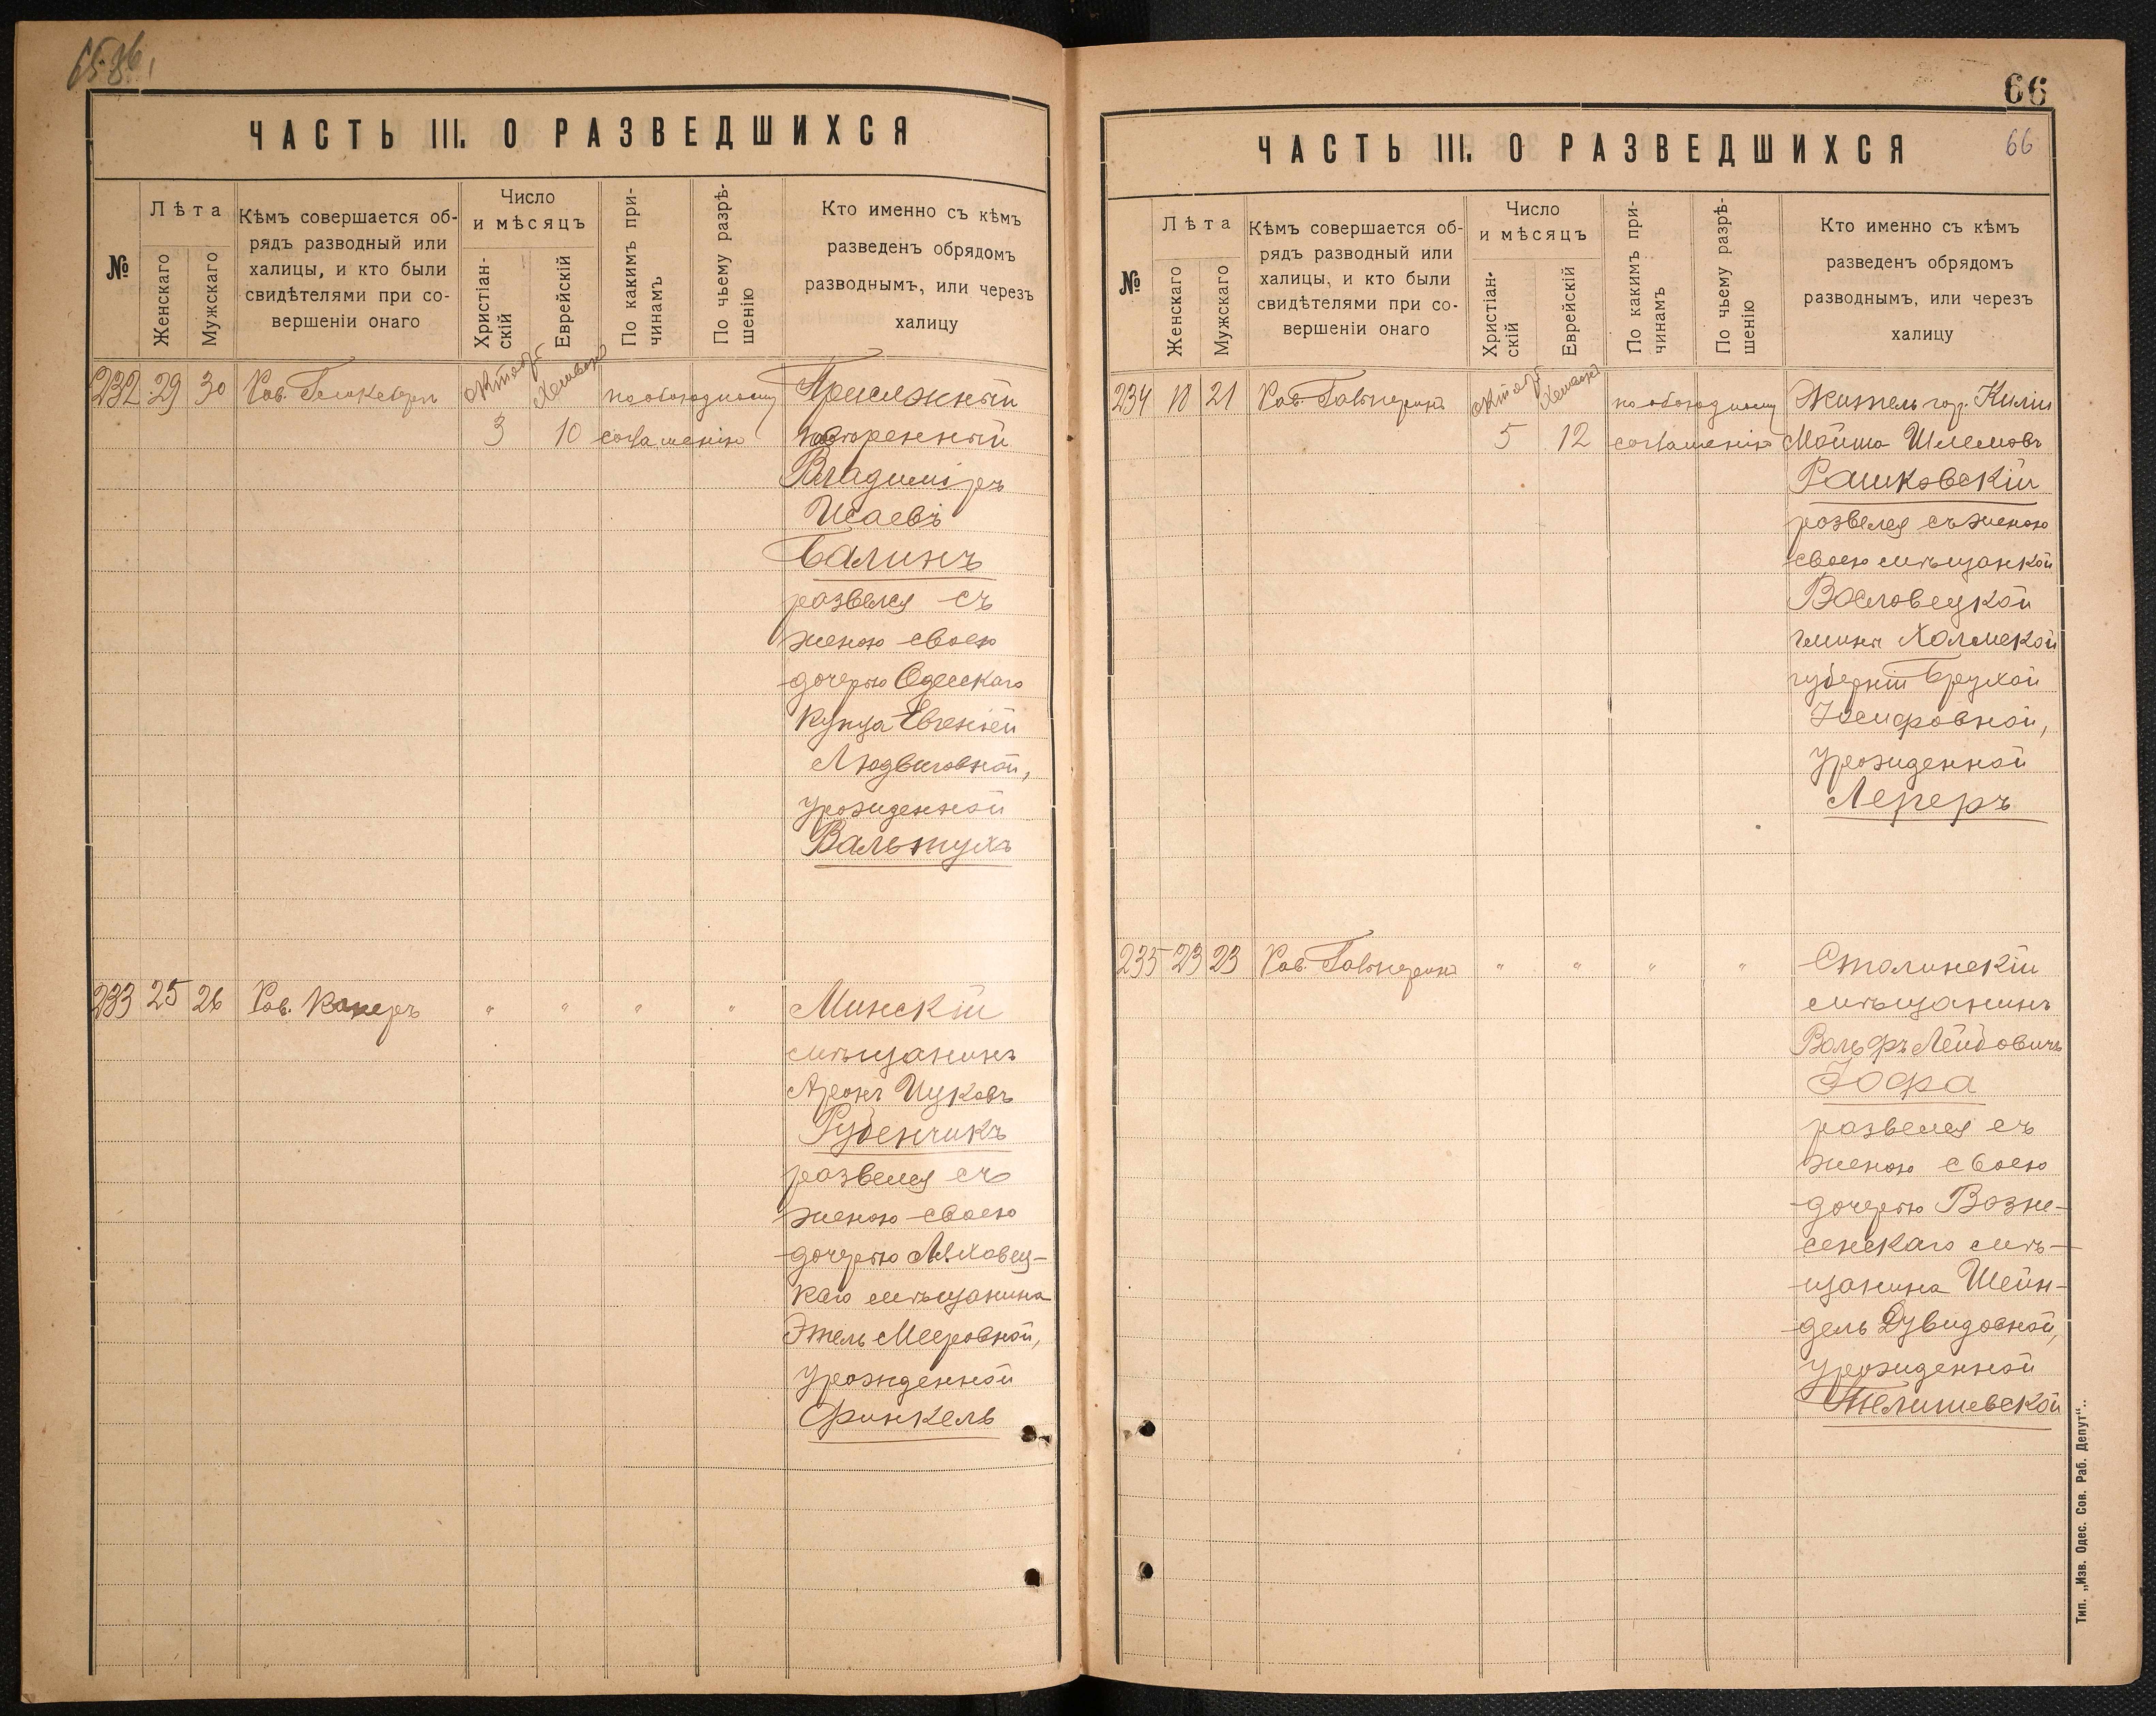 ЧАСТЬ III. О РАЗВЕДШИХСЯ
№
Лѣта
Женскаго
Мужскаго
Кѣмъ совершается об-
рядъ разводный или
халицы, и кто были
свидѣтелями при со-
вершеніи онаго
Число
и мѣсяцъ
Христіан-
скій
Еврейскій
По какимъ при-
чинамъ
По чьему разрѣ-
шенію
Кто именно съ кѣмъ
разведенъ обрядомъ
разводнымъ, или черезъ
халицу
232 29 30 Рав.
3 10
по обоюдному
соглашенію
Присяжный
повѣренный
Владиміръ
Исаевъ
Балинъ
развелся съ
женою своею
дочерью Одесскаго
купца Евгеніей
Людвиговной,
урожденной
Вальтухъ
233 25 26 Рав. " " " "
Минскій
мѣщанинъ
Аронъ Ицковъ
Рубенчикъ
развелся съ
женою своею
дочерью Ляховец-
каго мѣщанина
Этель Мееровной,
урожденной
Финкель
66
ЧАСТЬ III. О РАЗВЕДШИХСЯ
66
№
Лѣта
Женскаго
Мужскаго
Кѣмъ совершается об-
рядъ разводный или
халицы, и кто были
свидѣтелями при со-
вершеніи онаго
Число
и мѣсяцъ
Христіан-
скій
Еврейскій
По какимъ при-
чинамъ
По чьему разрѣ-
шенію
Кто именно съ кѣмъ
разведенъ обрядомъ
разводнымъ, или черезъ
халицу
234 18 21 Рав.
5 12
по обоюдному
соглашенію
Житель гор. Киліи
Мойша Шлемовъ
Рашковскій
развелся съ женою
своею мѣщанкой
гмины Холмской
губерніи Брухой
Іосифовной,
урожденной
Лереръ
235 23 23 Рав. " " " "
Столинскій
мѣщанинъ
Вольфъ Лейбовичъ
Іофа
развелся съ
женою своею
дочерью Возне-
сенскаго мѣ-
щанина Шейн-
дель Дувидовной,
урожденной
Телишевской
Тип. „Изв. Одес. Сов. Раб. Депут“.